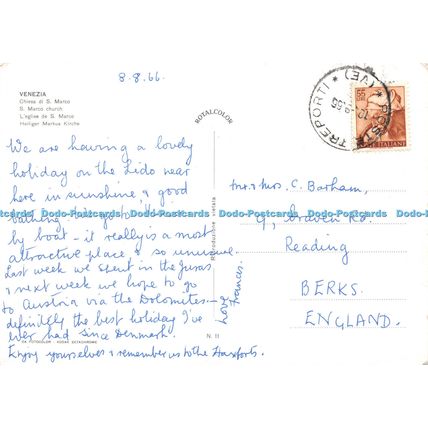 8.8.66.
VENEZIA
Chiesa di S. Marco
S. Marco church
L'eglise de S. Marco
Heiliger Markus Kirche
We are having a lovely
holiday on the Lido near
here in sunshine, & good
bathing.
by boat - it really is a most
attractive place & so unusual.
Last week we spent in the Juras
& next week we hope to go
to Austria via the Dolomites -
definitely the best holiday I've
ever had since Denmark.
Enjoy yourselves & remember us to the
Love
Frances.
ROTALCOLOR
Riproduzione vietata
N. 11
FOTOCOLOR - KODAK EKTACHROME
POSTE
TREPORTI * (VE) *
55
POSTE ITALIANE
Mr & Mrs. C. Barham,
9, Craven Rd.
Reading
BERKS.
ENGLAND.
Dodo-Postcards Dodo-Postcards Dodo-Postcards Dodo-Postcards Dodo-Postcards